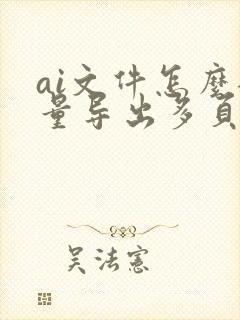 ai文件怎麽
量导出多頁
吴法憲